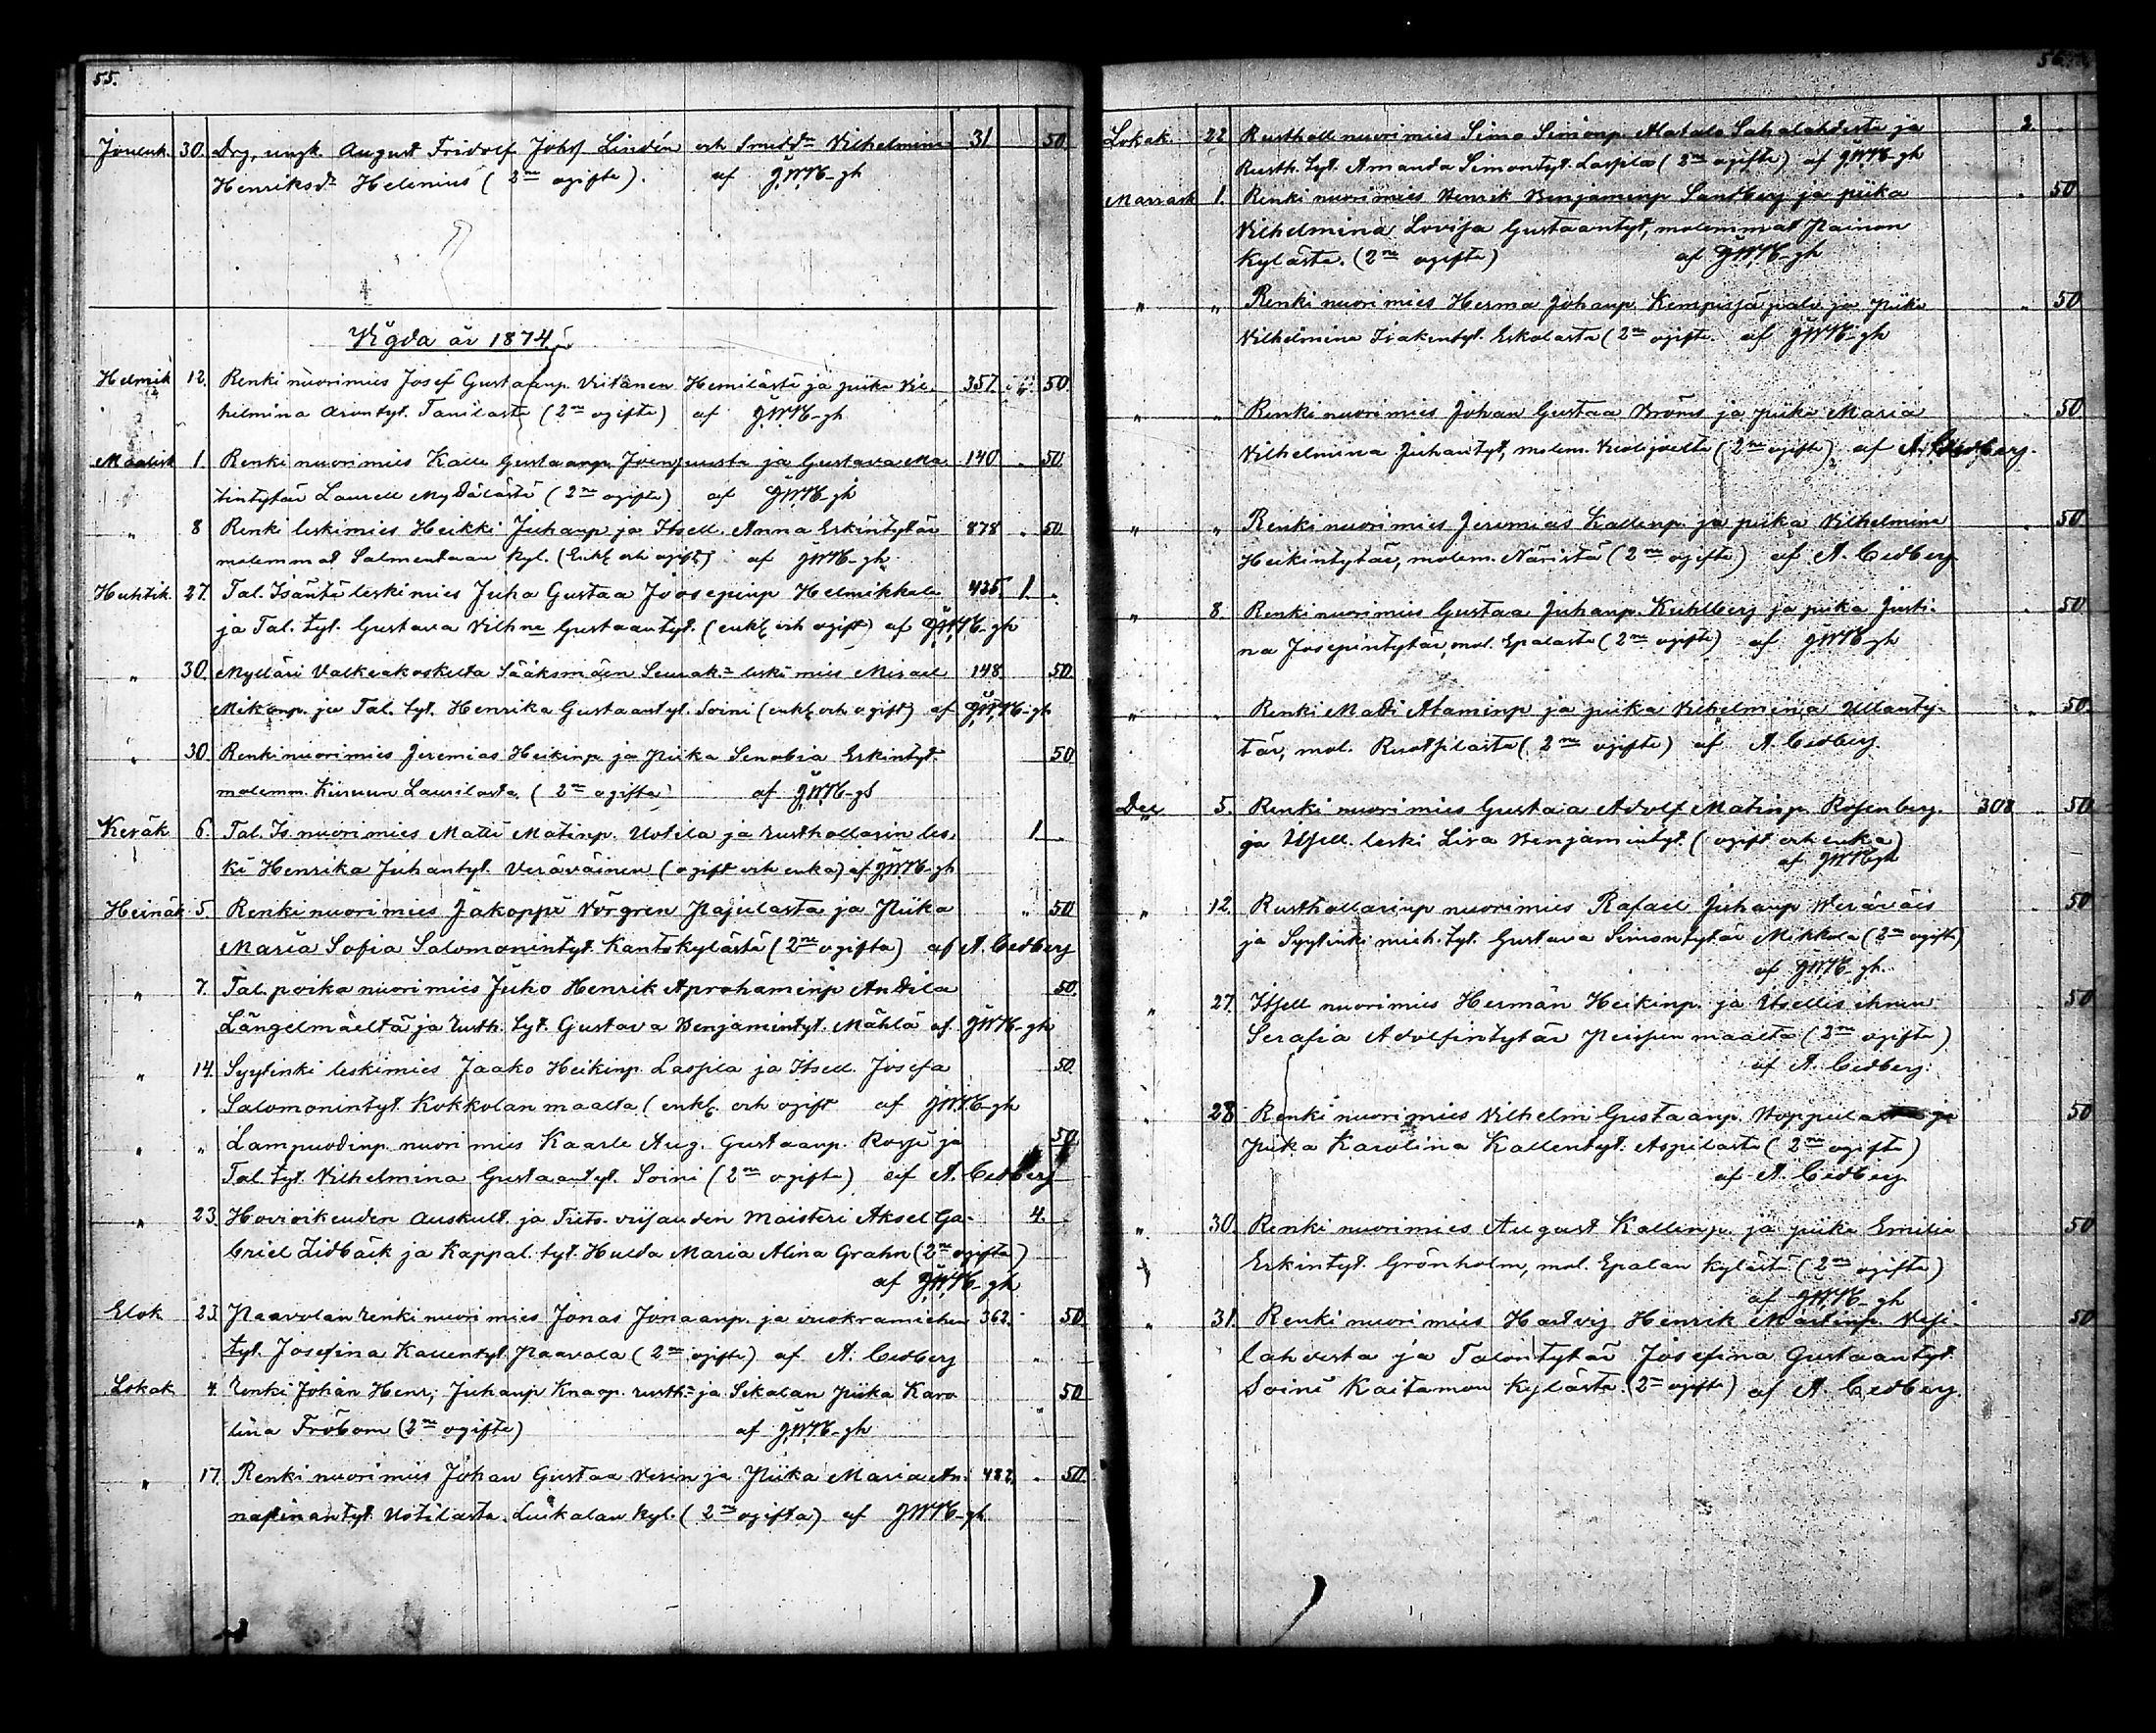 55.
Jouluk. 30. Drg, ungk. August Fridolf Johsf Lindén och Smedd:r Vilhelmina 31 50.
Henriksd:r Helenius (2ne ogifte). af
Vigda år 1874.
Helmik 12. Renki nuorimies Josef Gustaanp. Hemilästä ja piika Vil- 357. 50.
helmina Arontyt. Tanilasta (2ne ogifte) af
Maalisk 1 Renki nuorimies Kalle Gustaanp. ja Gustava Ma- 140 50.
tintytär Laurell (2ne ogifte) af
" 8 Renki leskimies Heikki Juhanp ja Itsell. Anna Erkintytär 878 50
molemmat Salmentaan kyl. (Enkl och ogift) af
Huhtik. 27. Tal. Isäntä leskimies Juha Gustaa Joosepinp Helmikkala 435. 1.
ja Tal. tyt. Gustava Vilhne Gustaantyt. (enkl och ogift) af
" 30. Mylläri Valkeakoskelta Sääksmäen Seurak:a leskimies Misael 148 50.
Mikonp. ja Tal. tyt. Henrika Gustaantyt. Soini (enkl och ogift) af
" 30. Renki nuorimies Jeremias Heikinp ja Piika Senobia Erkintyt. 50
molemm. Laurilasta. (2ne ogifta) af
Kesäk 6. Tal. Is nuorimies Matti Matinp. Uotila ja rusthollarin les- 1.
ki Henrika Juhantyt. Veräväinen (ogift och enka) af
Heinäk 5. Renki nuorimies Jakoppi Vörgren Pajulasta ja Piika " 50
Maria Sofia Salomonintyt. Kantokylästä (2ne ogifta) af A. Cedberg
" 7. Tal. poika nuorimies Juho Henrik Aprahaminp Anttila 50.
Längelmäeltä ja rusth. tyt. Gustava Benjamintyt. Mählä af
" 14. Syytinki leskimies Jaako Heikinp. Laspila ja Itsell. Josefa 50.
Salomonintyt Kokkolan maalta (enkl. och ogift af
" " Lampuodinp. nuorimies Kaarle Aug. Gustaanp. ja 50
Tal. tyt. Vilhelmina Gustaantyt. Soini (2ne ogifte) af A. Cedberg
" 23. Hovioikeuden auskult. ja maisteri Aksel Ga- 4.
briel Lidbäck ja Kappal. tyt. Hulda Maria Alina Grahn (2ne ogifta)
af
Elok 23 Paavolan renki nuorimies Jonas Jonaanp. ja vuokramiehen 362. 50.
tyt. Josefina Kallentyt. Paavola (2ne ogifte) af A. Cedberg
Lokak 4. Renki Johan Henr, Juhanp Knap. rusth:a ja Sikalan Piika Karo- 50
lina Fröbom (2ne ogifte) af
" 17. Renki nuorimies Johan Gustaa Verin ja Piika Maria An- 482. 50.
Uotilasta. Luikalan kyl. (2ne ogifta) af
Lokak. 22 Rusthollnuorimies Simo Simonp. Alatalo Sahalahdesta ja 2.
Rusth. tyt. Amanda Simontyt. Laspila (2ne ogifte) af
Marrask 1. Renki nuorimies Henrik Benjaminp Sandberg ja piika 50
Vilhelmina Lovisa Gustaantyt, molemmat Painon
kylästä. (2ne ogifte) af
" " Renki nuorimies Herma Johanp. ja Piika 50
Vilhelmina Isakintyt. Eskolasta (2ne ogifte. af
" " Renki nuorimies Johan Gustaa Broms ja piika Maria 50
Vilhelmina Juhantyt, molem. (2ne ogifte) af A. Cedberg.
" " Renki nuorimies Jeremias Kallenp. ja piika Vilhelmina 50
Heikintytär, molem. (2ne ogifte) af A. Cedberg
" 8. Renki nuorimies Gustaa Juhanp. Kuhlberg ja piika Justi- 50
na Josepintytär, mol. Epalasta (2ne ogifte) af
" " Renki Matti Ataminp ja piika Vilhelmina Ullanty- 50.
tär, mol. (2ne ogifte) af A. Cedberg
Dec 5. Renki nuorimies Gustaa Adolf Matinp. Rosenberg. 308 50
ja Itsell. leski Liva Benjamintyt. (ogift och enka)
af
" 12. Rusthollarinp nuorimies Rafael Juhanp Veräväis 50
ja Syytinki mieh. tyt. Gustava Simontytär Mikkola (2ne ogift)
af
" 27. Itsell nuorimies Herman Heikinp. ja Itsellis 50
Serafia Adolfintytär maalta (2ne ogifte)
af A. Cedberg.
28 Renki nuorimies Vilhelm Gustaanp. Hoppula ja 50
piika Karolina Kallentyt. Aspilasta (2ne ogifte)
af A. Cedberg
" 30. Renki nuorimies August Kallenp. ja piika Emilia 50
Erkintyt. Grönholm, mol. Epalan kylästä (2ne ogifte)
af
" 31. Renki nuorimies Hartvig Henrik Martinp. Vesi- 50
lahdesta ja Talontytär Josefina Gustaantyt.
Soini Kaitamon kylästä. (2ne ogifte) af A. Cedberg.